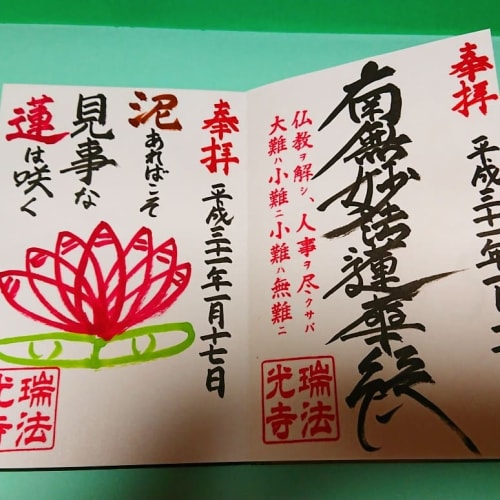 奉拝
平成三十一年一月十
南無妙法蓮華経
仏教ヲ解シ、人事ヲ尽クサバ
大難ハ小難ニ小難ハ無難ニ
瑞法
光寺
奉拝
平成三十一年一月十七日
泥あればこそ
見事な
蓮は咲く
瑞法
光寺